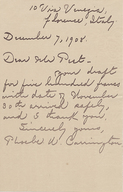 10 Via Venezia,
Florence, Italy
December 7, 1908.
Dear Mr Pect—
Your draft
for five hundred francs
with date of November
30th arrived safely,
and I thank you.
Sincerely yours,
Phoebe W. Carrington